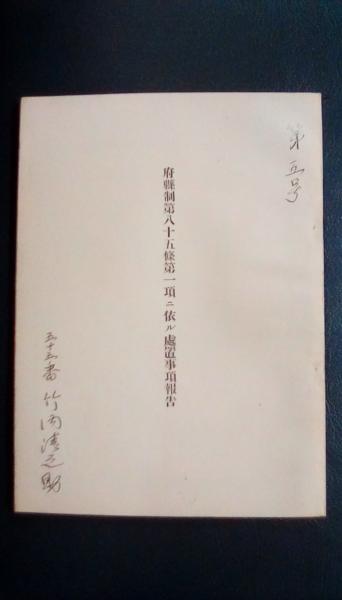 第五号
府縣制第八十五條第一項ニ依ル處置事項報告
五十五番 竹内清之助